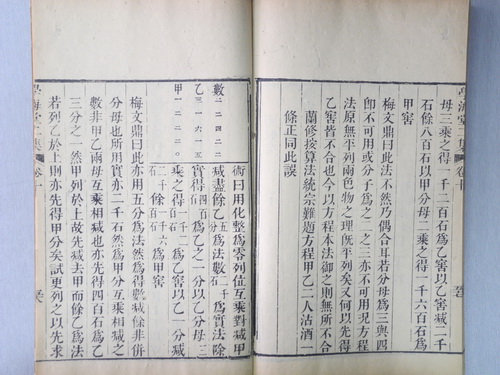 母三乘之得一千二百爲乙窖以乙窖減二千
石餘八百石以甲分母二乘之得一千六百石爲
甲窖
梅文鼎曰此法不然乃偶合耳若分母爲三與四
卽不可用或分子爲之二之三亦不可用况方程
法原無平列兩色物之理旣平列矣又何以先得
乙窖皆不合也今以方程本法御之則無所不合
蘭修按算法統宗難題方程甲乙二人沽酒一
條正同此誤
數
乙
甲
術曰用化整爲零列位互乘對減甲
減盡餘乙五爲法數二千爲實法除
實得四百石爲乙之一分以乙分母三
乘之得一千二百石爲乙窖以乙一分減
二千石餘爲甲窖
梅文鼎曰此亦用五分爲法然爲得數減餘非併
分母也所用實亦二千石然爲甲分互乘相減之
數非甲乙兩母互乘相減也亦先得四百石爲乙
三分之一然甲列於上故先減去甲而餘乙爲法
若列乙於上則亦先得甲分矣試更列之以先求
學海堂二集 卷十